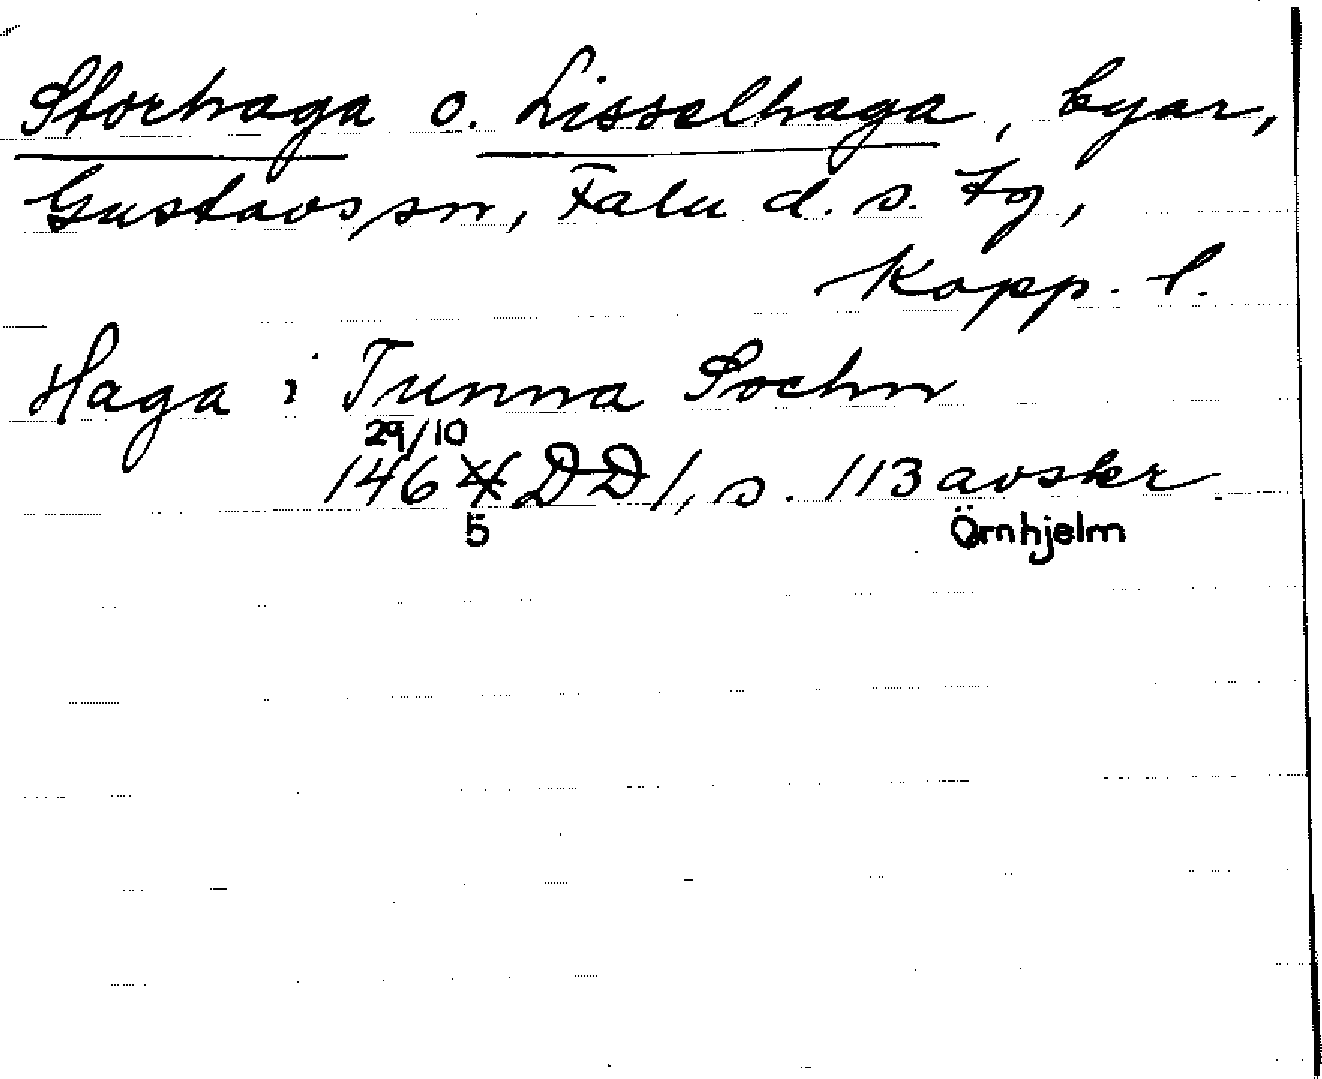 Storhaga o. Lisselhaga, byar,
Gustavs sn, Falu d. s. Fg,
Kopp. l.
Haga i Tunna Sochn
29/10
1464 DD 1, s. 113 avskr
5 Örnhjelm